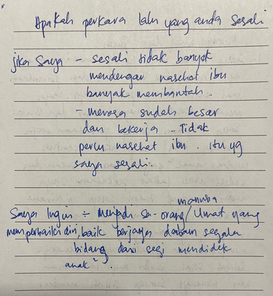 Apakah perkara lalu yang anda sesali
jika saya - sesali tidak banyak
mendengar nasehat ibu
banyak membantah.
- merasa sudah besar
dan bekerja. Tidak
perlu nasehat ibu. itu yg
saya sesali.
manusia
Saya Ingin ÷ Menjadi se-orang / Umat yang
memperbaiki diri, baik berjaya dalam segala
bidang dari segi mendidik
anak².